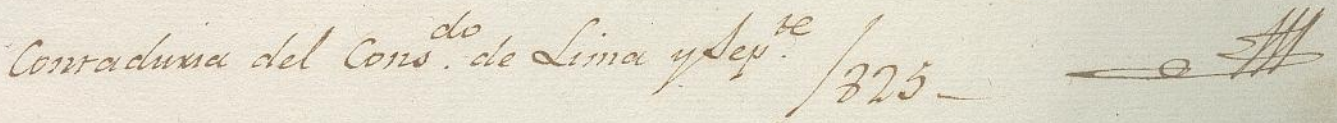 Contaduria del Cons.do de Lima y Sep.re /825_